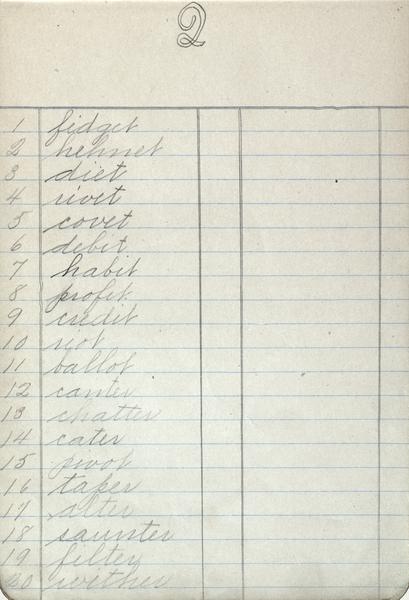 2
1 fidget
2 helmet
3 diet
4 rivet
5 covet
6 debit
7 habit
8 profit
9 credit
10 riot
11 ballot
12 canter
13 chatter
14 cater
15 pivot
16 taper
17 alter
18 saunter
19 filter
20 wether